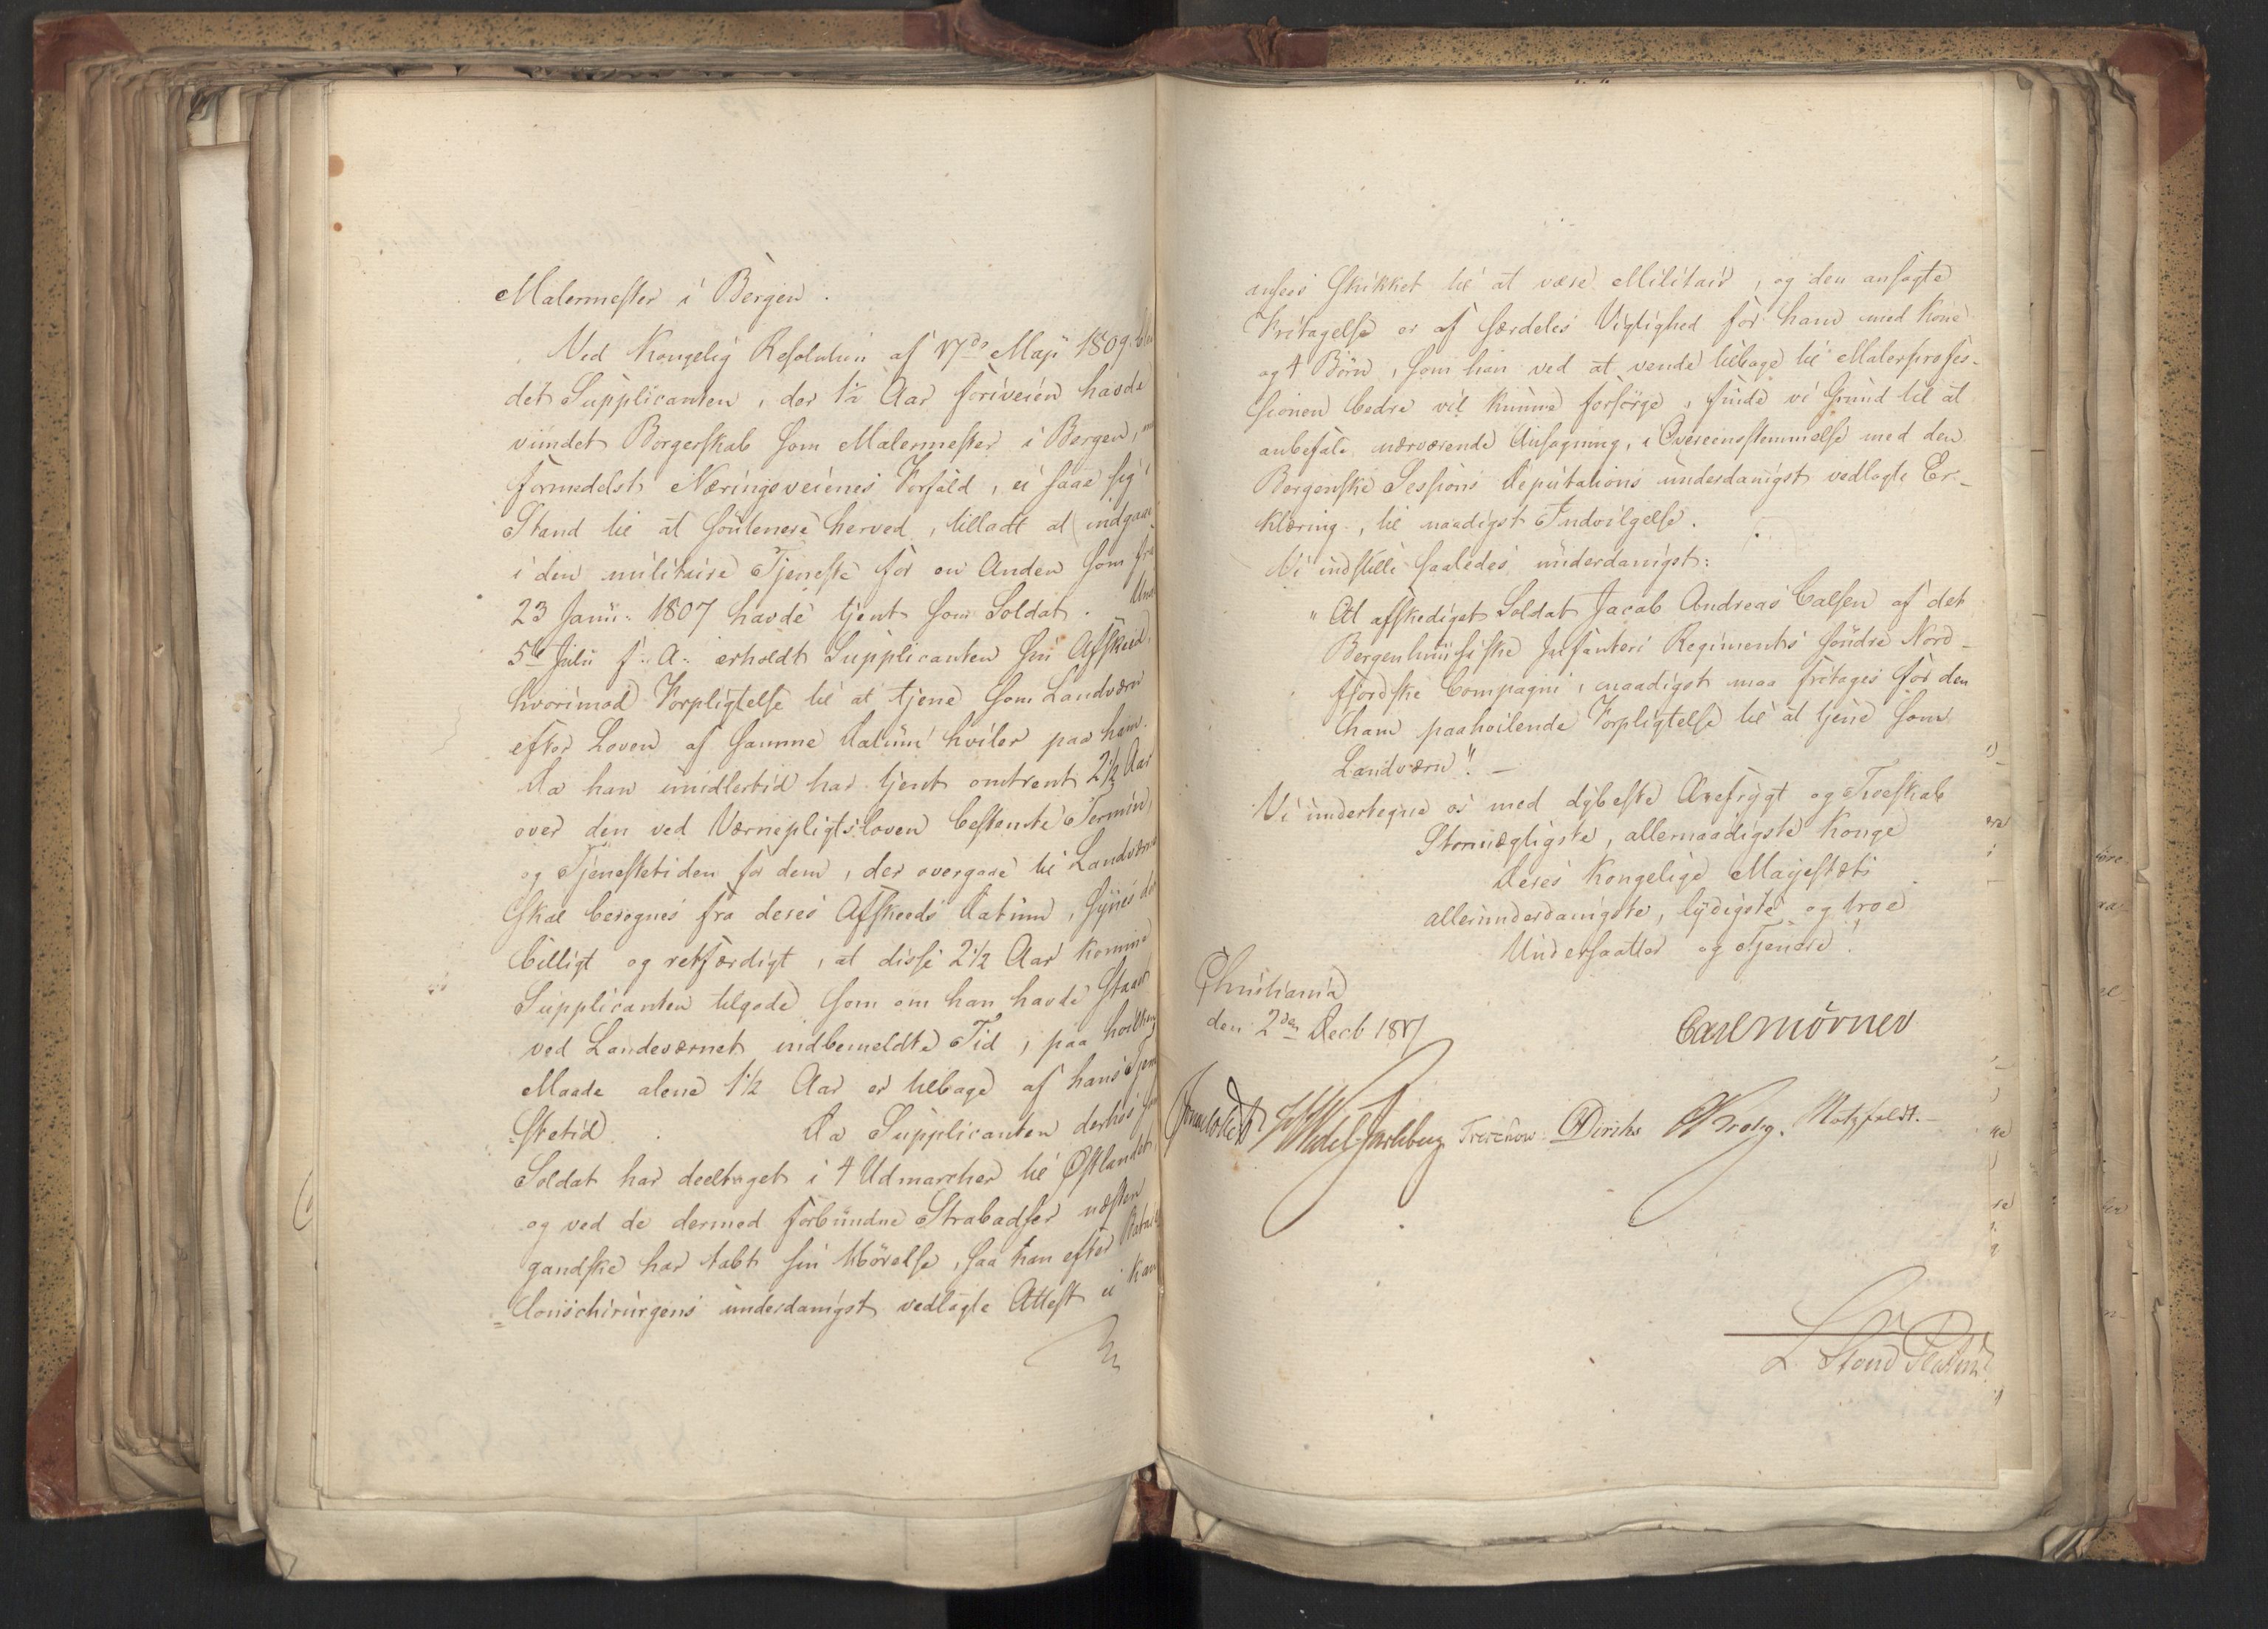 Malermester i Bergen.
Ved Kongelig Resolution af 17de Maji 1809. blev
det Supplicanten, der 1½ Aar foriveien havde
vundet Borgerskab som Malermester i Bergen,
formedelst Næringsveienes Forfald, ei saae sig i
Stand til at soutenere herved, tilladt at indgaae
i den militaire Tjeneste for en Anden som fra
23 Janu: 1807 havde tjent som Soldat. Un
5te Julii f: A: erholdt Supplicanten sin Afskeed,
hvorimod Forpligtelse til at tjene som Landværn
efter Loven af samme Datum hviler paa ham.
Da han imidlertid har tjent omtrent 2½ Aar
over den ved Værnepligtsloven bestemte Termin,
og Tjenestetiden for dem, der overgaae til Landværnet
skal beregnes fra deres Afskeeds Datum, synes det
billigt og retfærdigt, at disse 2½ Aar komme
Supplicanten tilgode som om han havde staaet
ved Landeværnet indbemeldte Tid, paa hvilken
Maade alene 1½ Aar er tilbage af hans Tjene
=stetid. Da Supplicanten derhos som
Soldat har deeltaget i 4 Udmarcher til Østlandet,
og ved de dermed forbundne Strabadser næsten
gandske har tabt sin Hørelse, saa han efter Batail
=lonschirurgens underdanigst vedlagte Attest ei kan
ansees skikket til at være Militair, og den ansøgte
Fritagelse er af særdeles Vigtighed for ham med Kone
og 4 Børn, som han ved at vende tilbage til Malerprofes-
sionen bedre vil kunne forsørge, finde vi Grund til at
anbefale nærværende Ansøgning, i Overeensstemmelse med den
Bergenske Sessions Deputations underdanigst vedlagte Er-
klæring, til naadigst Indvilgelse.
Vi indstille saaledes underdanigst:
"At afskediget Soldat Jacob Andreas Calsen af det
Bergenhuusiske Infanteri Regiments søndre Nord-
fjordske Compagni, naadigst maa fritages for den
ham paahvilende Forpligtelse til at tjene som
Landværn". —
Vi undertegne os med dybeste Ærefrygt og Troeskab
Stormægtigste, allernaadigste Konge
Deres Kongelige Majestæts
allerunderdanigste, lydigste og troe
Undersaatter og Tjenere.
Christiania
den 2den Decb 1817
Carl Mörner
Sommerhielm Wedel Jarlsberg Treschow Diriks Krohg. Motzfeldt.
L. Stoud Platou